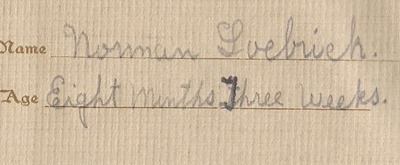 Name Norman Loebrich.
Age Eight Months Three Weeks.